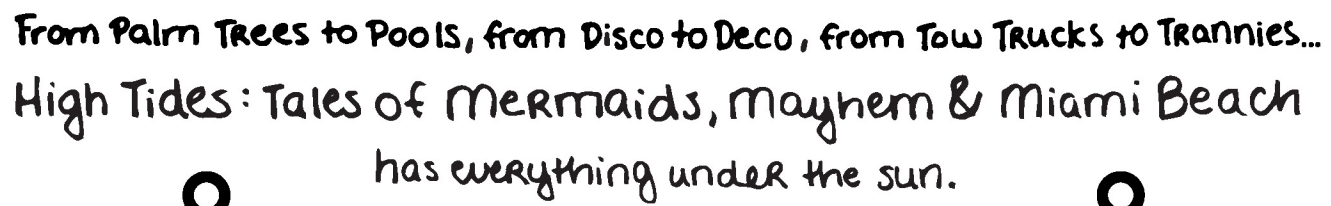 From Palm Trees to Pools, from Disco to Deco, from Tow Trucks to Trannies...
High Tides: Tales of Mermaids, Mayhem & Miami Beach
has everything under the sun.